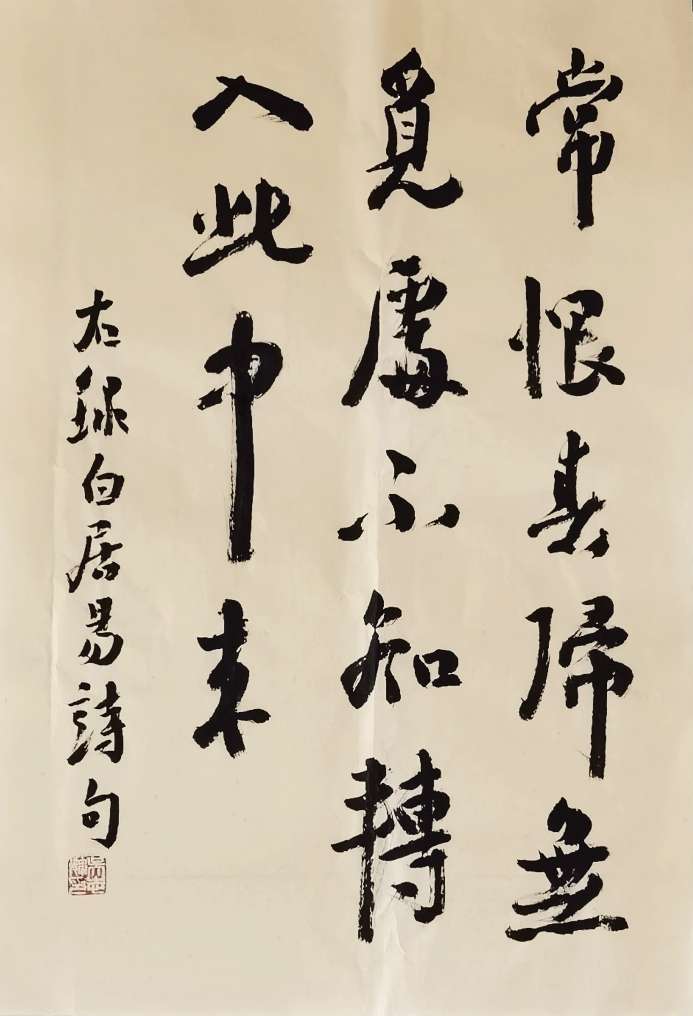 常恨春歸無
覓處不知轉
入此中来
右錄白居易詩句